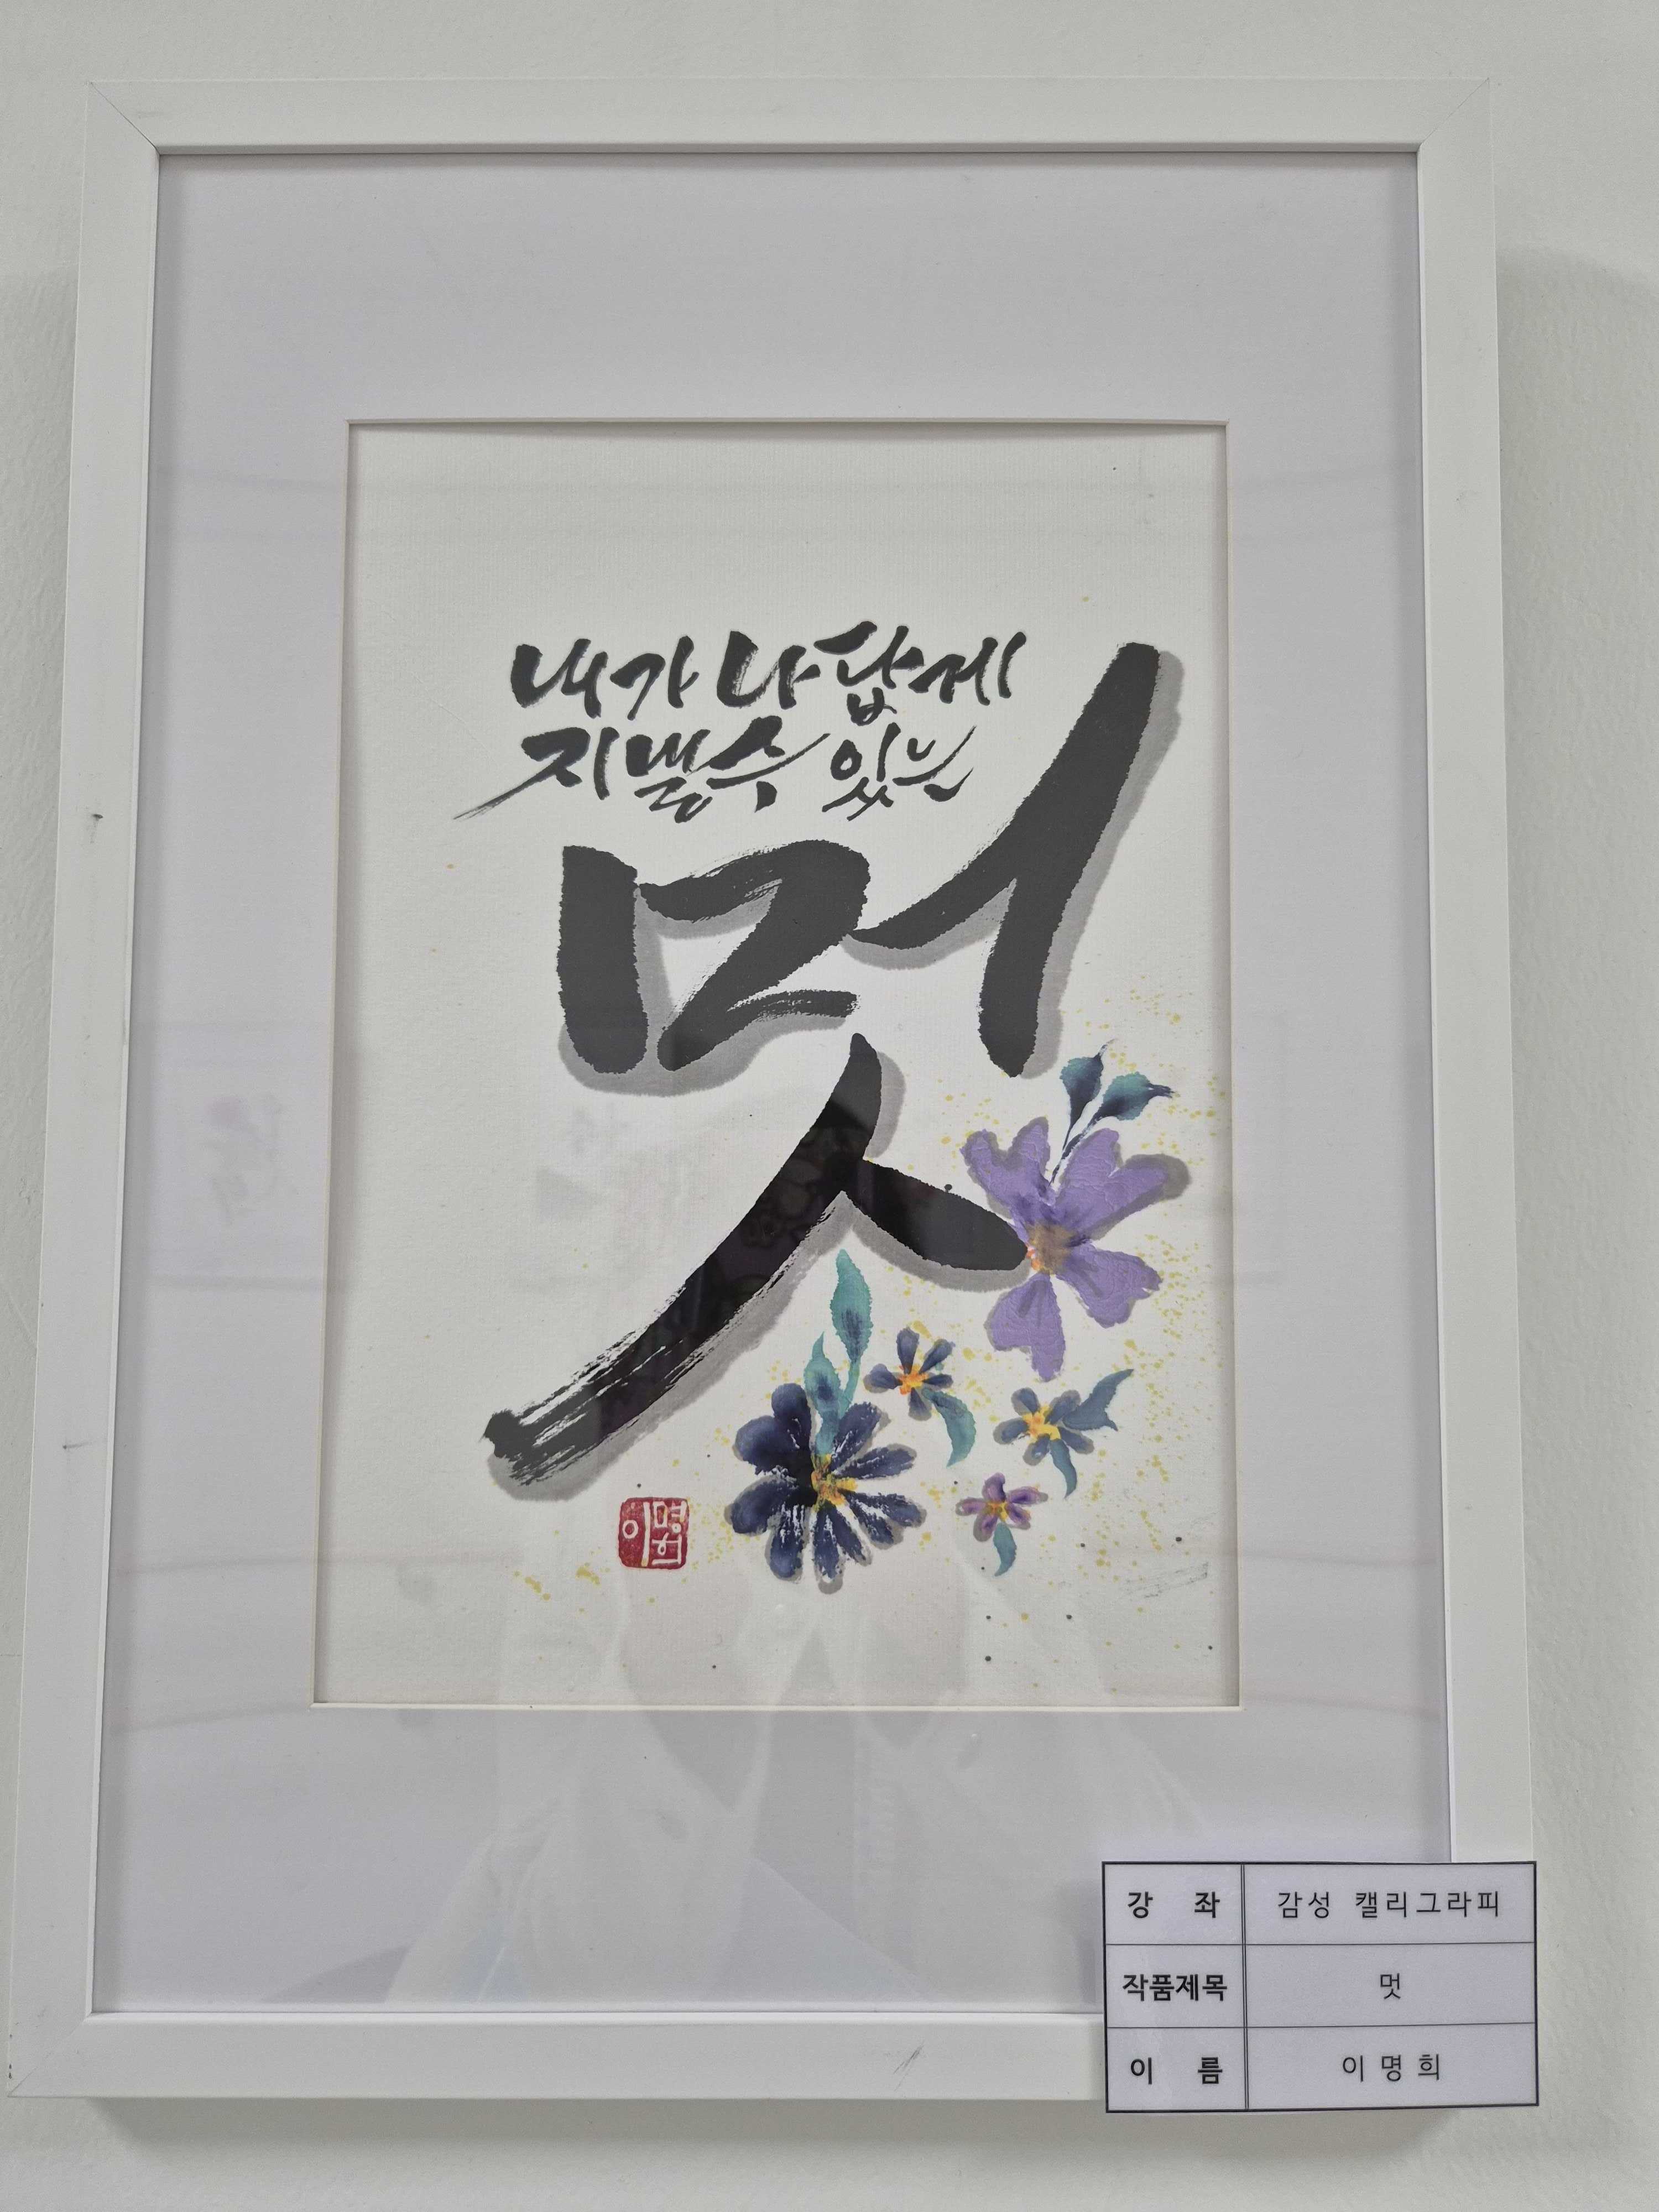 내가 나답게
지낼수 있는
멋
이명희
강 좌 감성 캘리그라피
작품제목 멋
이 름 이명희